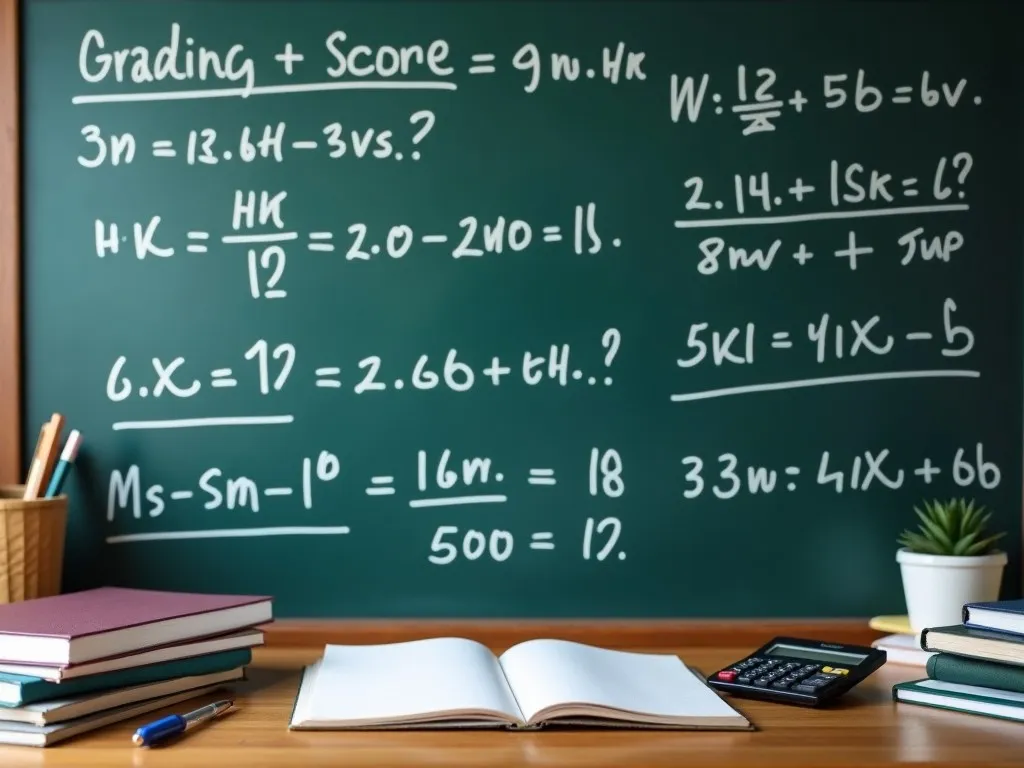 Grading + Score = 9 w. HK
3n = 13.6H - 3vs.?
H·K = HK/12 = 2.0 - 2460 = 15.
6.X = 17 = 2.66 + tH..?
Ms - Sm - 1º = 16m. = 18
500 = 17.
W: 12 + 5b = 6v.
2.14. + 15K = 6?
8mv + + Jup
5K1 = 41X - 5
33w: 41X + 6b